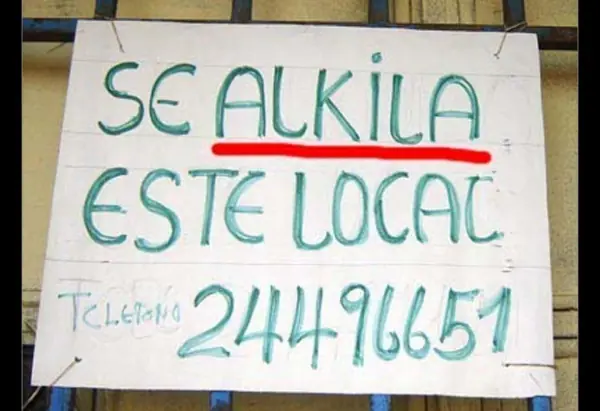 SE ALKILA
ESTE LOCAL
TELEFONO 24496651